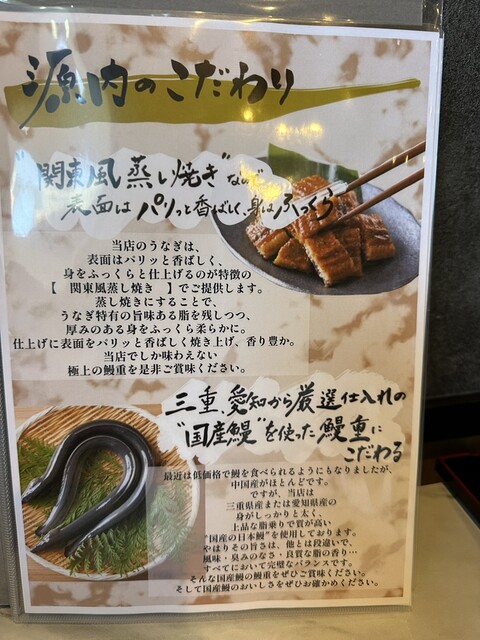 源内のこだわり
"関東風蒸し焼き"なので
表面はパリッと香ばしく、身はふっくら
当店のうなぎは、
表面はパリッと香ばしく、
身をふっくらと仕上げるのが特徴の
【 関東風蒸し焼き 】でご提供します。
蒸し焼きにすることで、
うなぎ特有の旨味ある脂を残しつつ、
厚みのある身をふっくら柔らかに。
仕上げに表面をパリッと香ばしく焼き上げ、香り豊か。
当店でしか味わえない
極上の鰻重を是非ご賞味ください。
三重、愛知から厳選仕入れの
"国産鰻"を使った鰻重に
こだわる
最近は低価格で鰻を食べられるようにもなりましたが、
中国産がほとんどです。
ですが、当店は
三重県産または愛知県産の
身がしっかりと太く、
上品な脂乗りで質が高い
"国産の日本鰻"を使用しております。
やはりその旨さは、他とは段違いで、
風味・臭みのなさ・良質な脂の香り…
すべてにおいて完璧なバランスです。
そんな国産鰻の鰻重をぜひご賞味ください。
そして国産鰻のおいしさをぜひお確かめください。